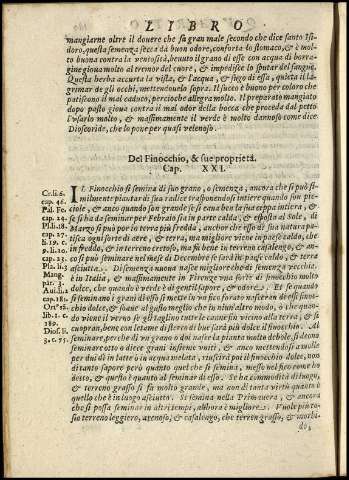 LIBRO
mangiarne oltre il douere che fa gran male secondo che dice santo Isi
doro, questa semenza secca dà buon odore, conforta lo stomaco, & è mol
to buona contra la ventosità, beuuto il grano di esse con acqua di borra-
gine gioua molto al tremor del cuore, & impedisce lo sputar del sangue.
Questa herba accurta la vista, & l'acqua, & sugo di essa, quieta il la-
grimar de gli occhi, mettendouelo sopra. Il succo è buono per coloro che
patiscono il mal caduco, percioche allegra molto. Il preparato mangiato
dopo pasto gioua contra il mal odor della bocca che proceda dal petto
l'usarlo molto, & massimamente il verde è molto dannoso come dice
Dioscoride, che lo pone per quasi velenoso.
Del Finocchio, & sue proprietà.
Cap. XXI.
IL Finocchio si semina di suo grano, o semenza, ancora che si può si-
milmente piantar di sua radice traponendosi intiere quando son pic-
ciole, & anzo quando son grande se si caua ben la sua ceppa intiera, &
se si ha da seminar per Febraio sia in parte calda, & esposta al Sole, di
Margo si può por in terra più fredda, anchor che esso di sua natura pa-
tisca ogni sorte di aere, & terra, ma migliore viene in paese caldo, che
in freddo, & in terreno areoso, ma fà bene in terreno casalengo, & an-
cosi si può seminare nel mese di Decembre se sarà in paese caldo, & terra
asciutta. Di semenza nuoua nasce migliore che di semenza vecchia.
è in Italia, & massimamente in Firenze una sorte di finocchio molto
dolce, che quando è verde è di gentil sapore, & odore. Et se quando
si seminano i grani di esso si mette in un fico forato nasceran di essi finoc-
chio dolce, & soaue al gusto meglio che in niun'altro modo, o che quando
vicene il verno se gli taglino tutte le canne sin vicino alla terra, & si
cuopran, bene con letame di sterco di bue sarà più dolce il finocchio. Al
seminare, perche de un grano o doi nasce la pianta molto debole, si deono
seminare otto o diece grani insieme uniti, & anco mettendosi a molla
per duî dì in latte ò in acqua melata, riuscirà poi il finocchio dolce, non
ditanto sapore però quanto quel che si semina, messo nel fico come ho
detto, & questo è quanto al seminar di esso. Se ha commodità di luogo,
& terreno grasso si fà molto grande, ma con di tanta virtù quanto è
quello che è in luogo asciutto. Si semina nella Primauera, & ancora
che si possa seminar in altri tempi, allhora è migliore. Vuole più to-
sto terreno leggiero, arenoso, & casalengo, che terren grasso, & morbi-
do,
Cr. li. 6.
cap. 46.
Pal. Fe.
cap. 24.
Pl. li. 18.
cap. 27.
li. 19. c.
9. li. 20.
cap. 23.
Pla. li. 3
Mang.
par. 3.
Aui. li. 2
cap. 181.
Ort^us sa.
lib. 1. c.
189.
Diof. li.
3. c. 75.